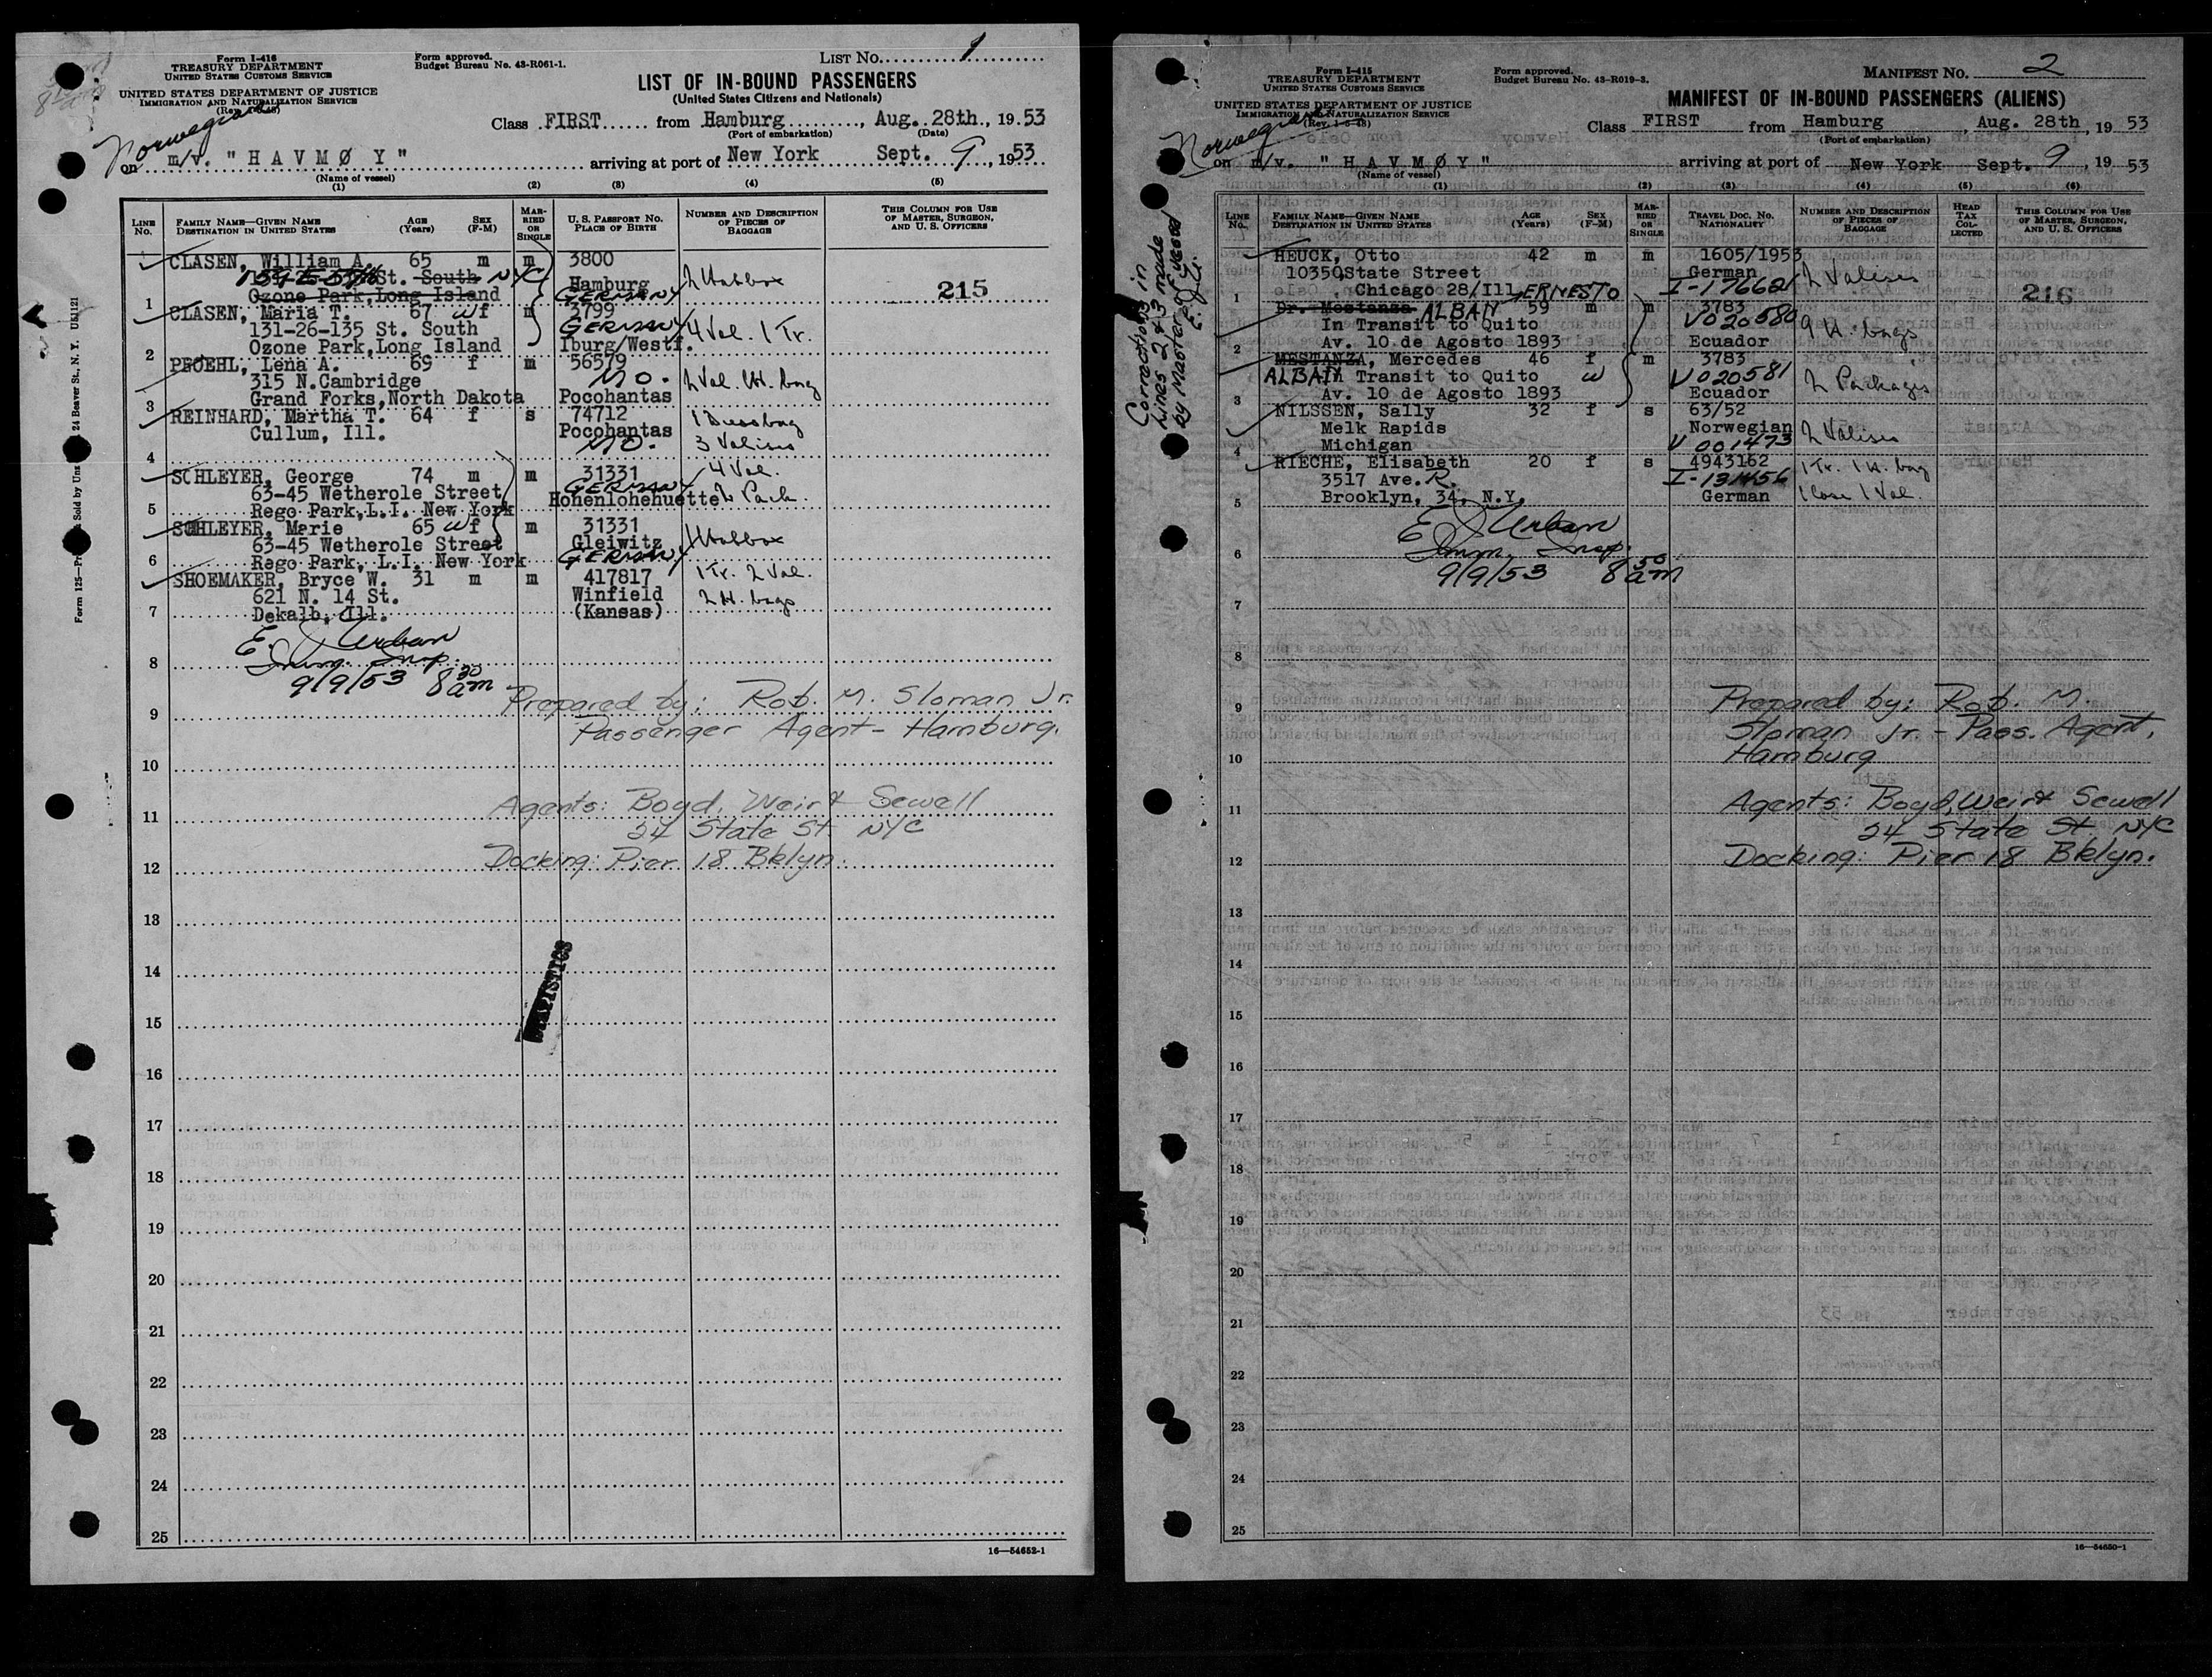 Form I-416
TREASURY DEPARTMENT
UNITED STATES CUSTOMS SERVICE
UNITED STATES DEPARTMENT OF JUSTICE
IMMIGRATION AND NATURALIZATION SERVICE
Form approved.
Budget Bureau No. 43-R061-1.
LIST NO. 1
LIST OF IN-BOUND PASSENGERS
(United States Citizens and Nationals)
Class FIRST from Hamburg, Aug. 28th., 1953
(Port of embarkation) (Date)
Norwegian
on m/v. "HAVMØY" arriving at port of New York Sept. 9, 1953
(Name of vessel)
(1) (2) (3) (4) (5)
LINE NO. FAMILY NAME—GIVEN NAME DESTINATION IN UNITED STATES AGE (Years) SEX (F-M) MARRIED OR SINGLE U. S. PASSPORT NO. PLACE OF BIRTH NUMBER AND DESCRIPTION OF PIECES OF BAGGAGE THIS COLUMN FOR USE OF MASTER, SURGEON, AND U. S. OFFICERS
CLASEN, William A. 65 m m 3800
St. South NYC Hamburg
1 Ozone Park, Long Island GERMANY 215
CLASEN, Maria T. 67 wf m 3799
131-26-135 St. South GERMANY 4 Val. 1 Tr.
2 Ozone Park, Long Island Iburg/Westf.
PROEHL, Lena A. 69 f m 56579
315 N. Cambridge MO.
3 Grand Forks, North Dakota Pocohantas
REINHARD, Martha T. 64 f s 74712
Cullum, Ill. Pocohantas
4 MO. 3 Valises
SCHLEYER, George 74 m m 31331 4 Val.
63-45 Wetherole Street GERMANY
5 Rego Park, L.I. New York Hohenlohehuette 2 Pack.
SCHLEYER, Marie 65 wf m 31331
63-45 Wetherole Street Gleiwitz
6 Rego Park, L.I. New York GERMANY
SHOEMAKER, Bryce W. 31 m m 417817 1 Tr. 2 Val.
621 N. 14 St. Winfield 2 H. bags
7 Dekalb, Ill. (Kansas)
E. J. Urban
8 Imm. Insp.
9/9/53 8 30 am
9 Prepared by: Rob. M. Sloman Jr.
Passenger Agent - Hamburg.
10
11 Agents: Boyd, Weir & Sewell
24 State St. NYC
12 Docking: Pier 18 Bklyn.
13
14
15
16
17
18
19
20
21
22
23
24
25
STATISTICS
16—54652-1
Form I-415
TREASURY DEPARTMENT
UNITED STATES CUSTOMS SERVICE
UNITED STATES DEPARTMENT OF JUSTICE
IMMIGRATION AND NATURALIZATION SERVICE
Form approved.
Budget Bureau No. 43-R019-3.
MANIFEST NO. 2
MANIFEST OF IN-BOUND PASSENGERS (ALIENS)
Class FIRST from Hamburg, Aug. 28th, 1953
(Port of embarkation)
Norwegian
on m/v. "HAVMØY" arriving at port of New York Sept. 9, 1953
(Name of vessel)
(1) (2) (3) (4) (5) (6)
LINE NO. FAMILY NAME—GIVEN NAME DESTINATION IN UNITED STATES AGE (Years) SEX (F-M) MARRIED OR SINGLE TRAVEL DOC. NO. NATIONALITY NUMBER AND DESCRIPTION OF PIECES OF BAGGAGE HEAD TAX COLLECTED THIS COLUMN FOR USE OF MASTER, SURGEON, AND U. S. OFFICERS
Corrections in
Lines 2 & 3 made
by Master of Vessel
HEUCK, Otto 42 m m 1605/1953
10350 State Street German 2 Valises
1 Chicago 28/Ill. I-176621 216
Dr. Mestanza ALBAN ERNESTO 59 m m 3783
In Transit to Quito V020580 9 H. bags
2 Av. 10 de Agosto 1893 Ecuador
MESTANZA, Mercedes 46 f m 3783
ALBAN In Transit to Quito w V020581 2 Packages
3 Av. 10 de Agosto 1893 Ecuador
NILSSEN, Sally 32 f s 63/52
Melk Rapids Norwegian 2 Valises
4 Michigan V 001473
RIECHE, Elisabeth 20 f s 4943162 1 Tr. 1 H. bag
3517 Ave. R. I-131456
5 Brooklyn, 34, N.Y. German 1 Case 1 Val.
E J Urban
6 Imm. Insp.
9/9/53 8 30 am
7
8
9 Prepared by: Rob. M.
Sloman Jr. - Pass. Agent,
10 Hamburg
11 Agents: Boyd, Weir & Sewell
24 State St. NYC
12 Docking: Pier 18 Bklyn.
13
14
15
16
17
18
19
20
21
22
23
24
25
16—54650-1